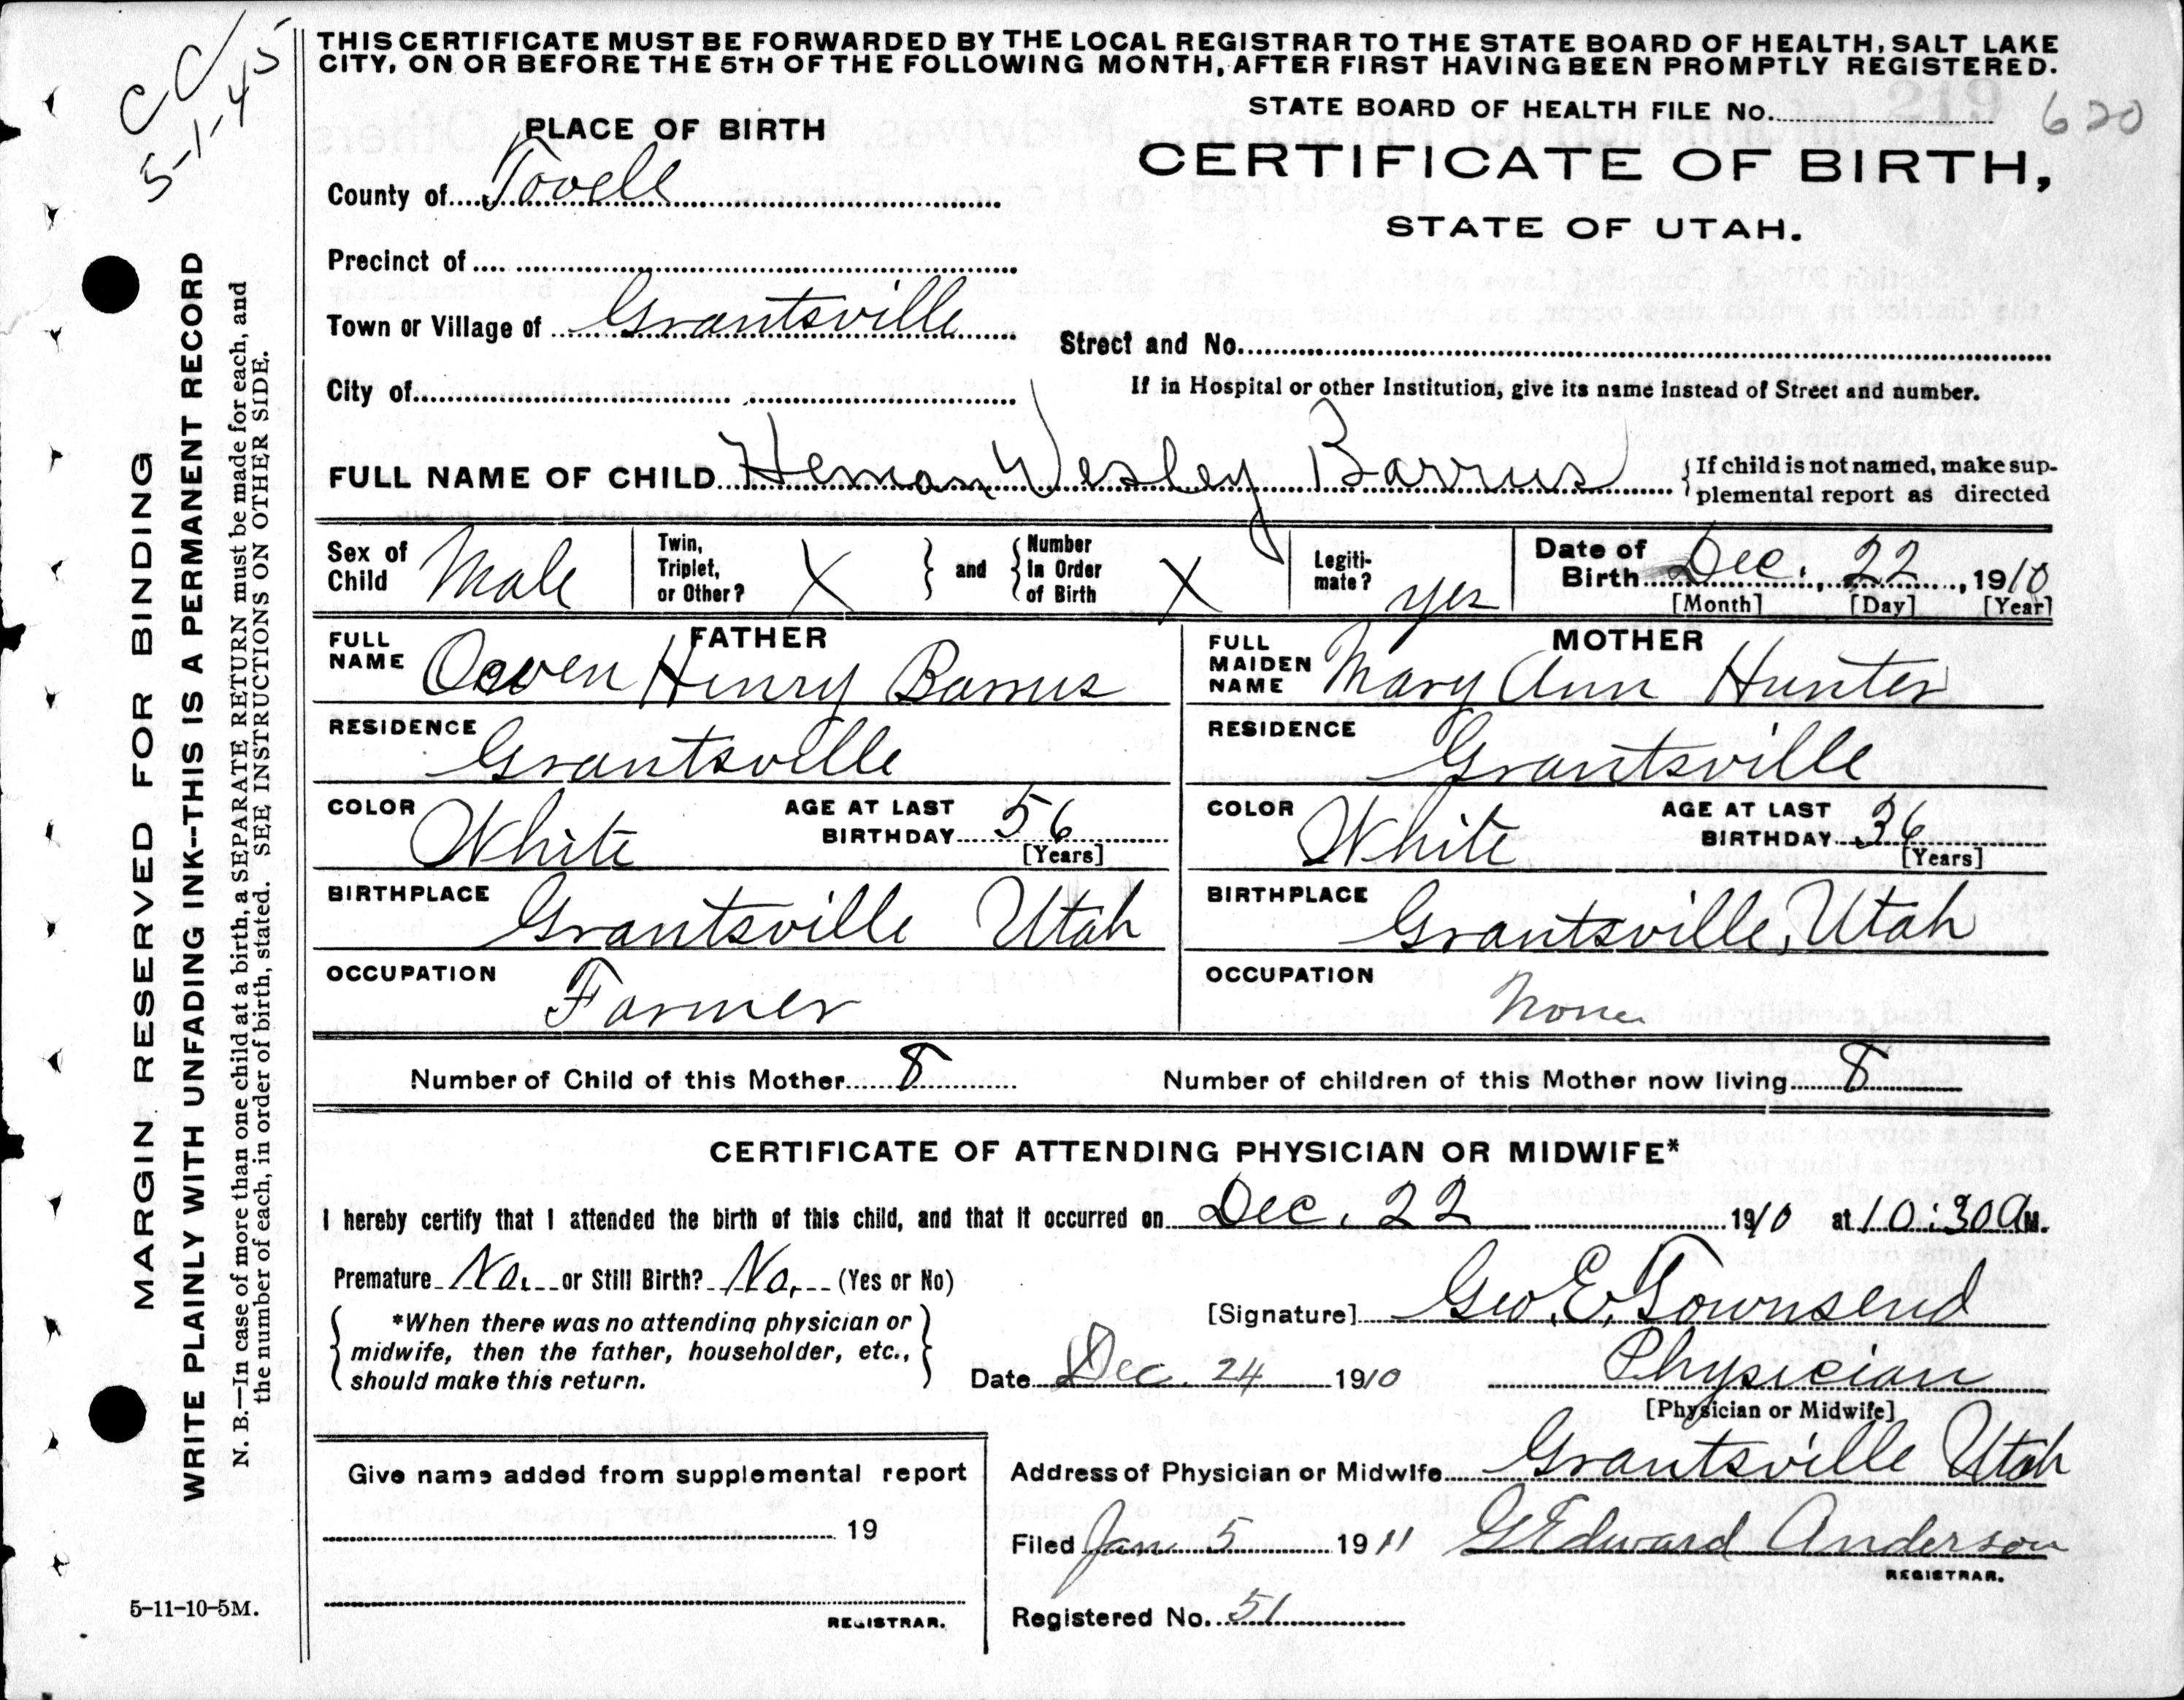 CC
5-1-45
THIS CERTIFICATE MUST BE FORWARDED BY THE LOCAL REGISTRAR TO THE STATE BOARD OF HEALTH, SALT LAKE
CITY, ON OR BEFORE THE 5TH OF THE FOLLOWING MONTH, AFTER FIRST HAVING BEEN PROMPTLY REGISTERED.
STATE BOARD OF HEALTH FILE No. 620
PLACE OF BIRTH
CERTIFICATE OF BIRTH,
STATE OF UTAH.
County of Tooele
Precinct of
Town or Village of Grantsville
Street and No.
City of
If in Hospital or other Institution, give its name instead of Street and number.
FULL NAME OF CHILD Heman Wesley Barrus
If child is not named, make sup-
plemental report as directed
Sex of Child Male
Twin, Triplet, or Other? X
and
Number In Order of Birth X
Legiti-mate? yes
Date of Birth Dec. 22, 1910
[Month] [Day] [Year]
FATHER
FULL NAME Owen Henry Barrus
MOTHER
FULL MAIDEN NAME Mary Ann Hunter
RESIDENCE Grantsville
RESIDENCE Grantsville
COLOR White AGE AT LAST BIRTHDAY 56 [Years]
COLOR White AGE AT LAST BIRTHDAY 36 [Years]
BIRTHPLACE Grantsville Utah
BIRTHPLACE Grantsville, Utah
OCCUPATION Farmer
OCCUPATION None
Number of Child of this Mother 8
Number of children of this Mother now living 8
CERTIFICATE OF ATTENDING PHYSICIAN OR MIDWIFE*
I hereby certify that I attended the birth of this child, and that it occurred on Dec. 22 1910 at 10:30 A M.
Premature No. or Still Birth? No. (Yes or No)
*When there was no attending physician or
midwife, then the father, householder, etc.,
should make this return.
[Signature] Geo. E. Townsend
Date Dec. 24 1910 Physician
[Physician or Midwife]
Give name added from supplemental report
19
REGISTRAR.
Address of Physician or Midwife Grantsville Utah
Filed Jan 5 1911 G Edward Anderson
REGISTRAR.
Registered No. 51
MARGIN RESERVED FOR BINDING
WRITE PLAINLY WITH UNFADING INK--THIS IS A PERMANENT RECORD
N. B.—In case of more than one child at a birth, a SEPARATE RETURN must be made for each, and
the number of each, in order of birth, stated. SEE INSTRUCTIONS ON OTHER SIDE.
5-11-10-5M.